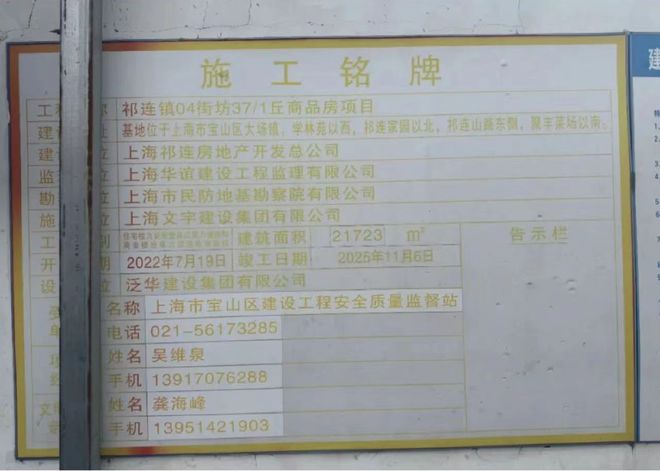 施工铭牌
工 称 祁连镇04街坊37/1丘商品房项目
建 址 基地位于上海市宝山区大场镇，学林苑以西，祁连家园以北，祁连山路东侧，聚丰菜场以南。
建 位 上海祁连房地产开发总公司
监 位 上海华谊建设工程监理有限公司
勘 位 上海市民防地基勘察院有限公司
施 位 上海文宇建设集团有限公司
工 别 建筑面积 21723 m² 告示栏
开 期 2022年7月19日 竣工日期 2025年11月6日
设 位 泛华建设集团有限公司
名称 上海市宝山区建设工程安全质量监督站
单 电话 021-56173285
项 姓名 吴维泉
经 手机 13917076288
文 姓名 龚海峰
手机 13951421903
建